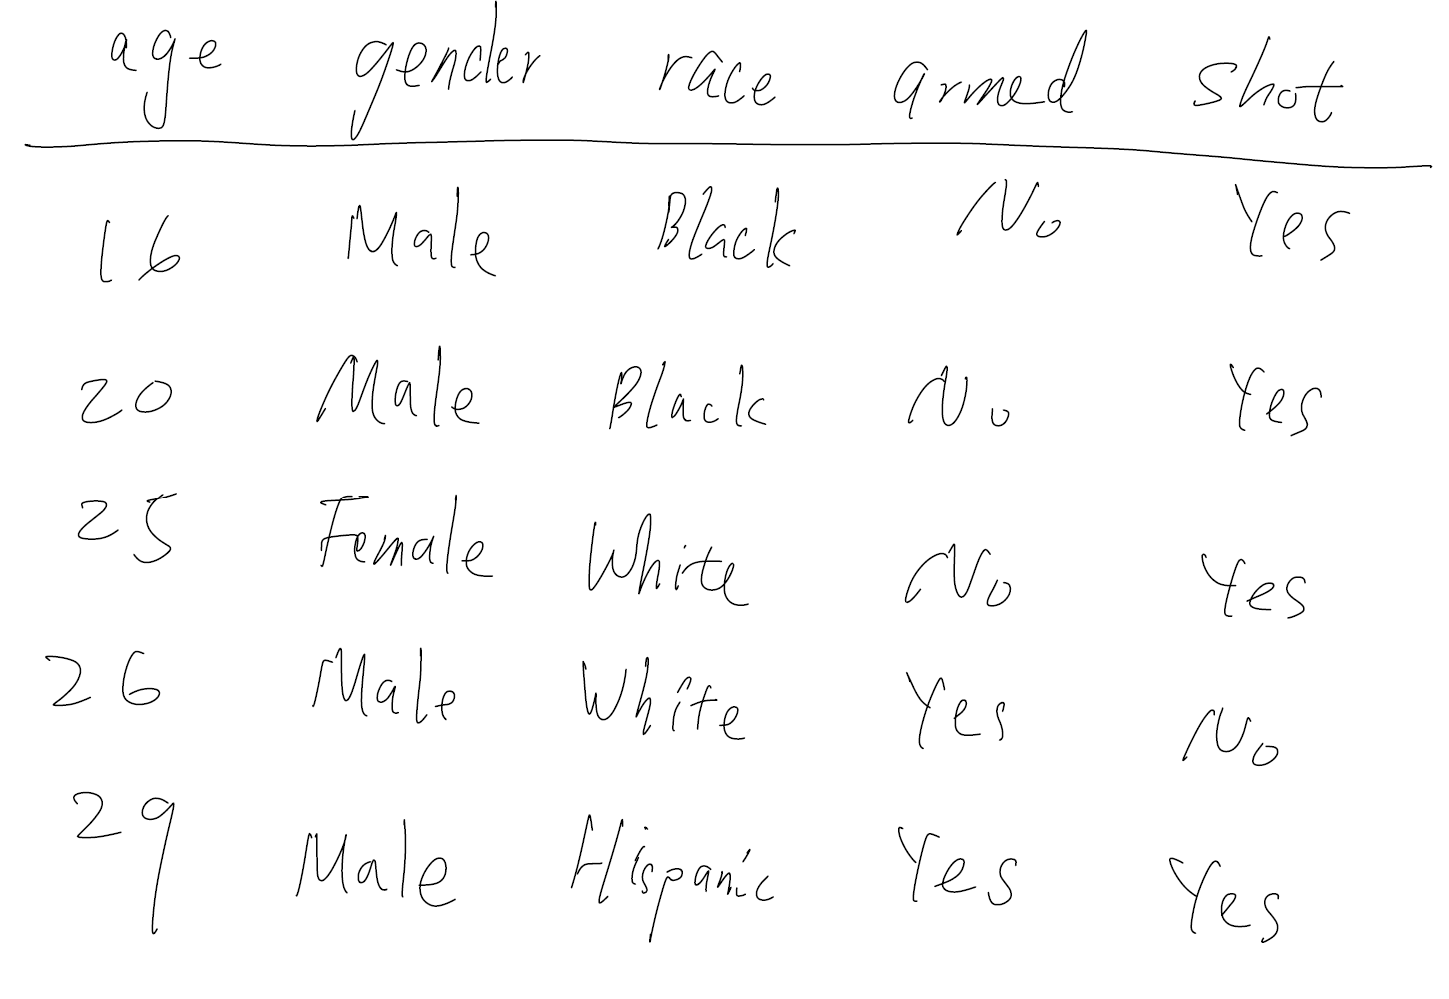 age gender race armed shot
16 Male Black No Yes
20 Male Black No Yes
25 Female White No Yes
26 Male White Yes No
29 Male Hispanic Yes Yes